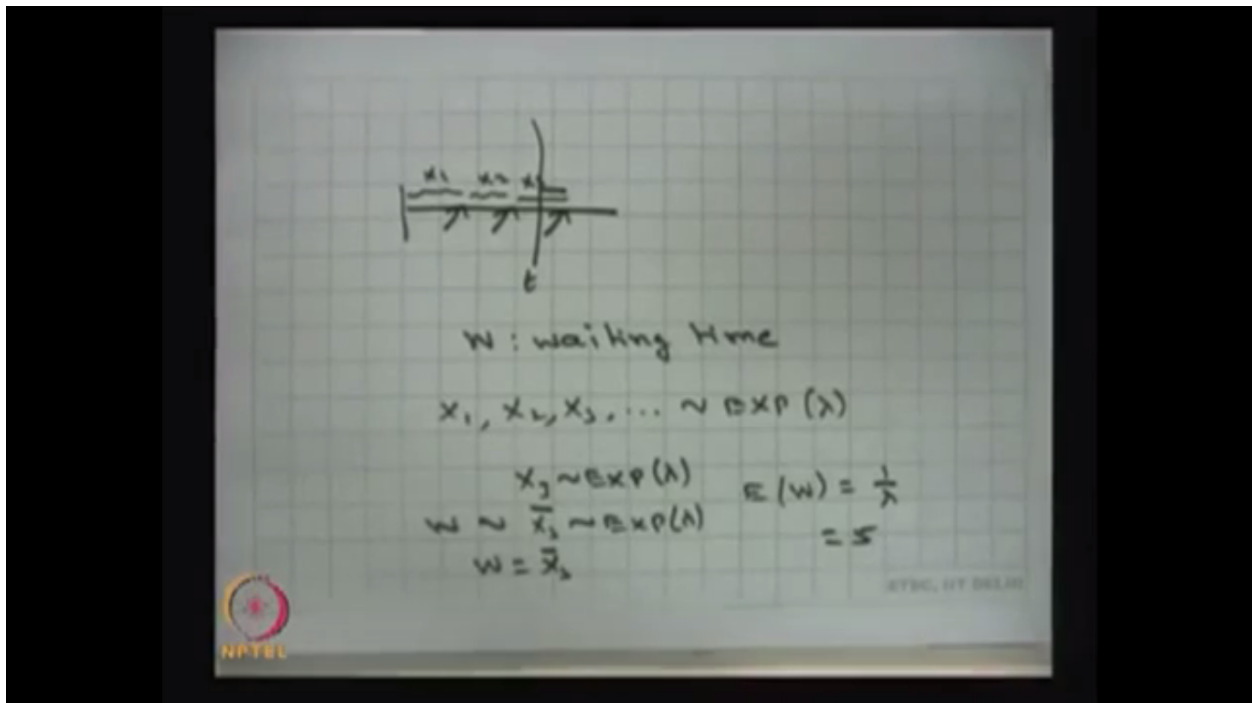 x1 x2 x3
t
W : waiting time
X1, X2, X3, ... ~ EXP (λ)
X3 ~ EXP(λ)
E(W) = 1/λ
W ~ X̄3 ~ EXP(λ)
= 5
W = X̄3
ETSC, IIT DELHI
NPTEL